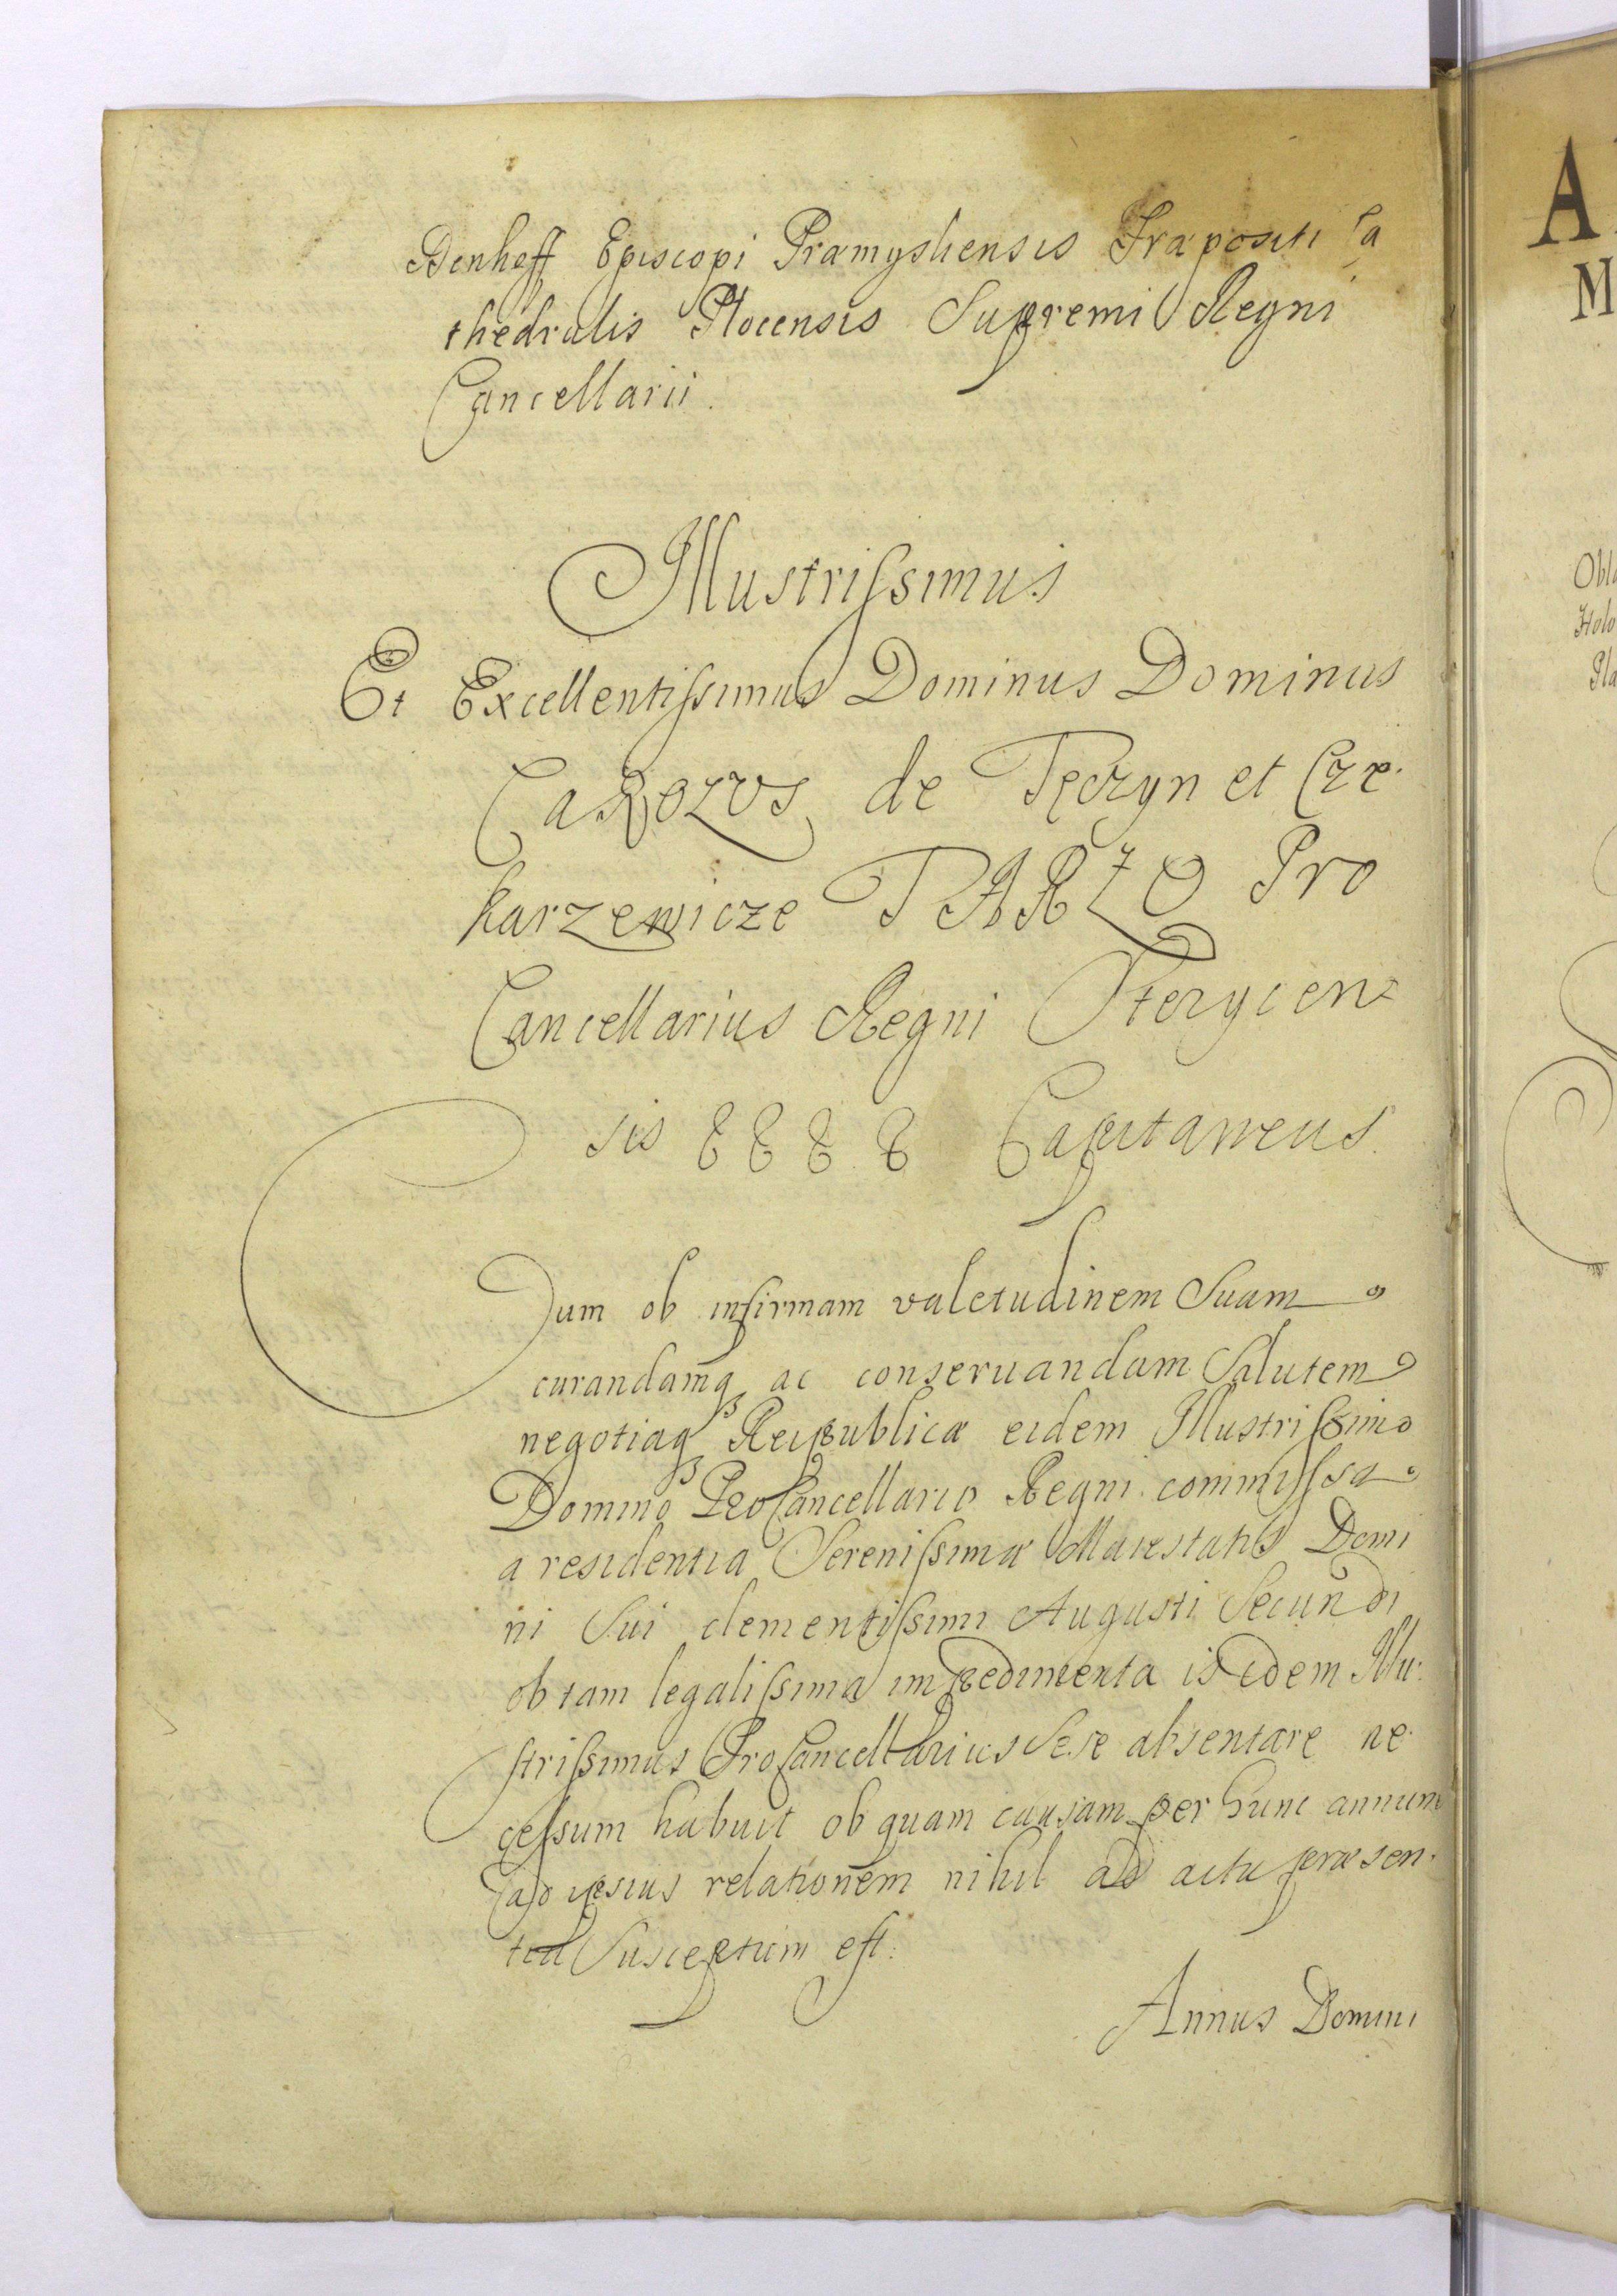 Denhoff Episcopi Præmysliensis Præpositi Ca
thedralis Plocensis Supremi Regni
Cancellarii.
Illustrissimus
Et Excellentissimus Dominus Dominus
CaROLVS de Tęczyn et Cze-
karzewicze TARŁO Pro
Cancellarius Regni Stezycen=
sis & & & & Capitaneus.
Dum ob infirmam valetudinem Suam
curandamq₃ ac conseruandam Salutem
negotiaq₃ Reipublicæ eidem Illustrissimo
Domino ProCancellario Regni commissa
a residentia Serenissimæ Maiestatis Domi
ni Sui clementissimi Augusti Secundi
ob tam legalissima impedimenta is idem Illu-
strissimus ProCancellarius Sese absentare ne-
cessum habuit ob quam causam per hunc annum
ad ipsius relationem nihil ad acta præsen-
tia Susceptum est.
Annus Domini
A
M
Obla
Holo
Pla